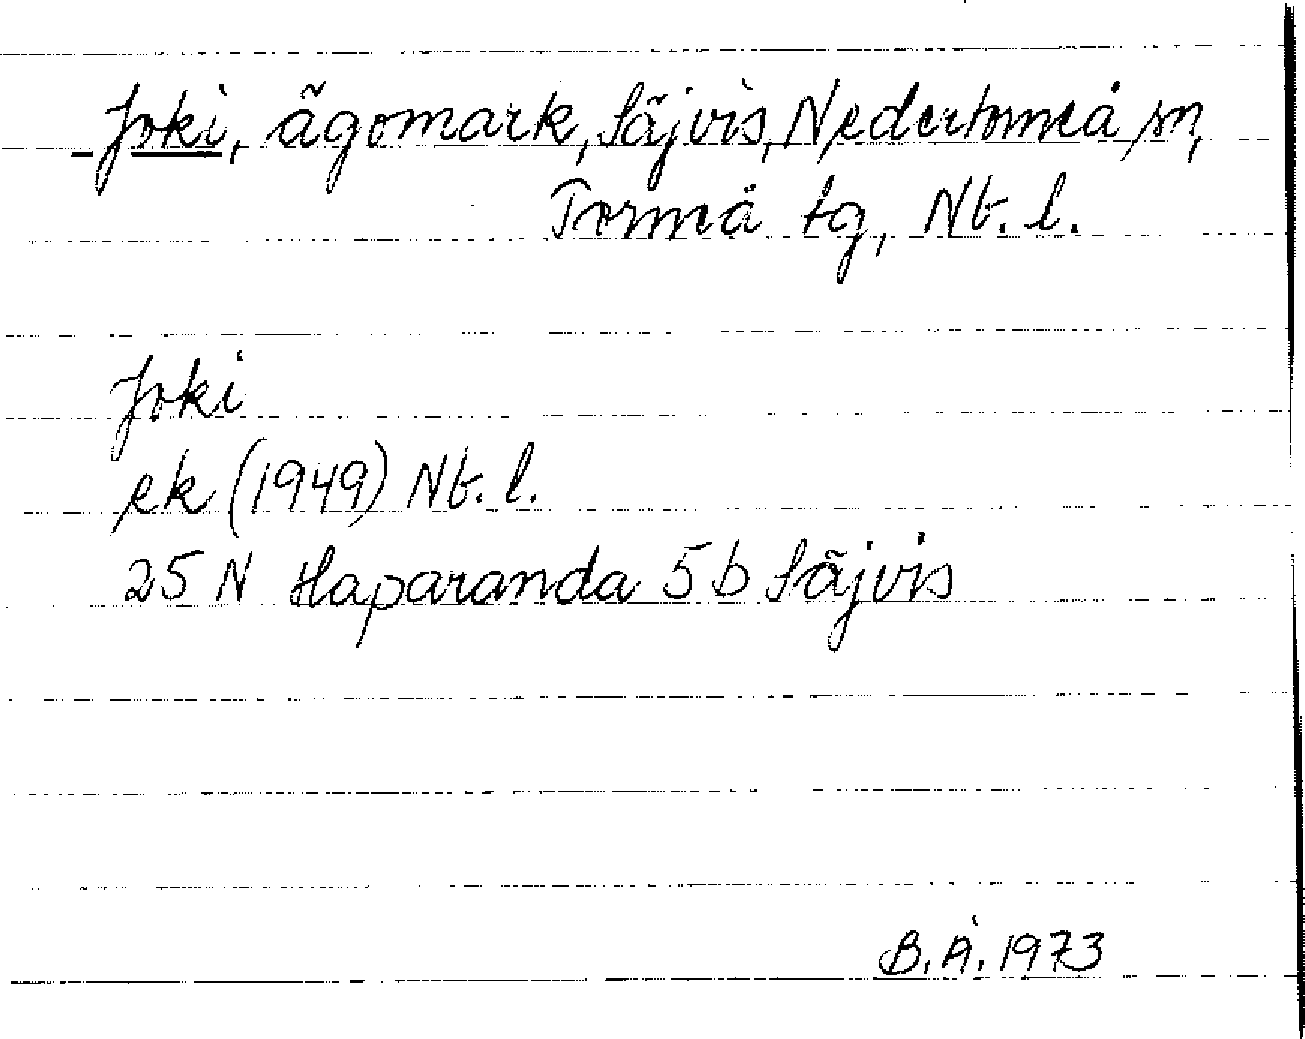 Joki, ägomark, Säjvis, Nedertorneå sn,
Torneå tg, Nb. l.
Joki
ek (1949) Nb. l.
25 N Haparanda 5 b Säjvis
B.Å. 1973